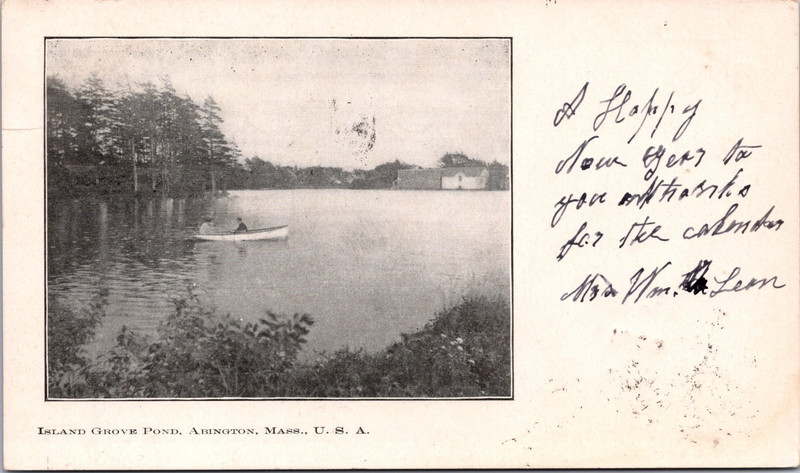 A Happy
New Year to
you thanks
for the calendar
Mrs Wm. Leon
Island Grove Pond, Abington, Mass., U. S. A.